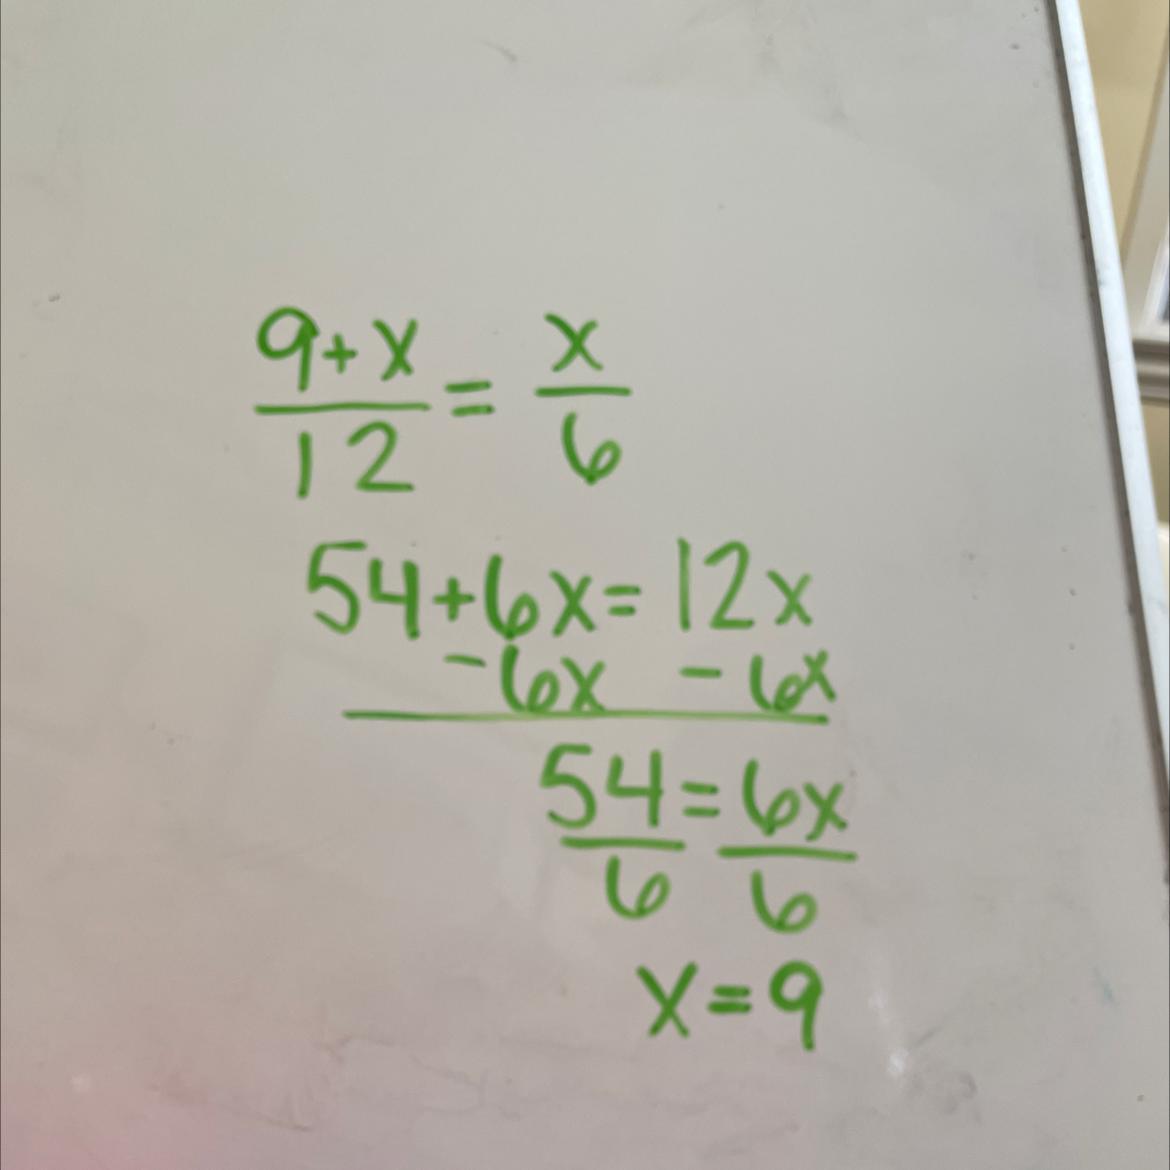 9+x/12 = x/6
54+6x=12x
-6x -6x
54/6=6x/6
x=9